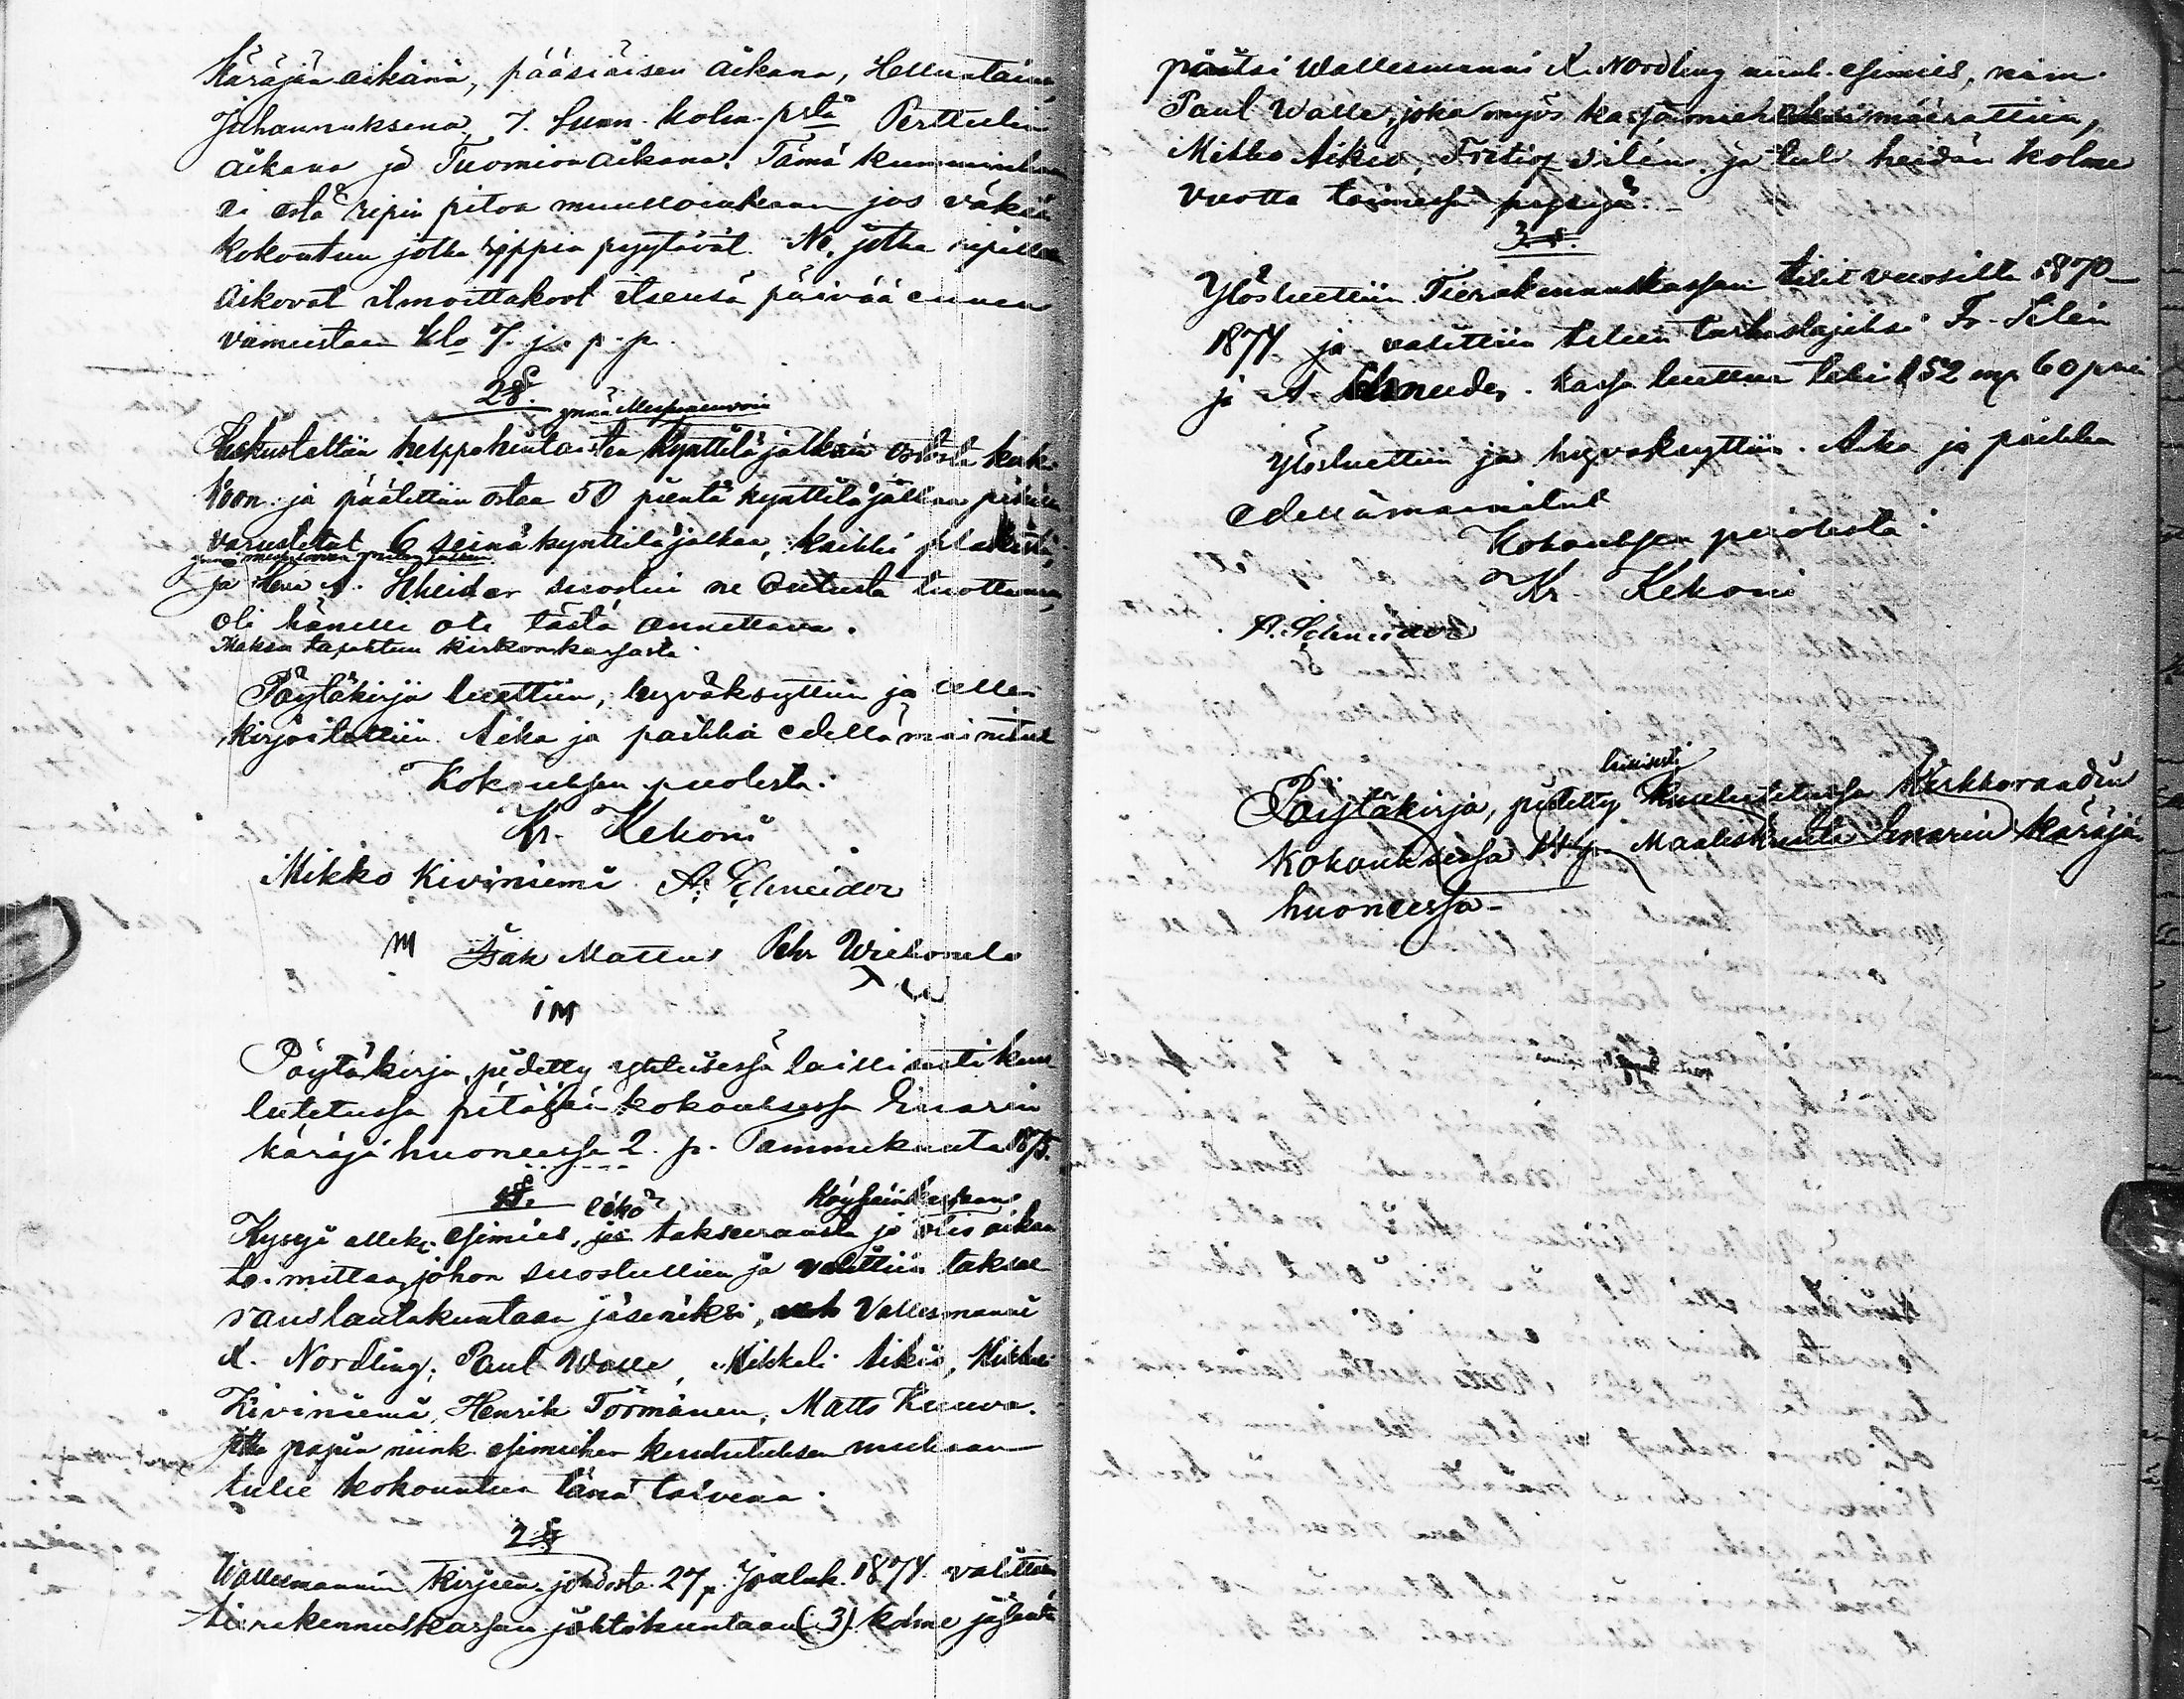 Käräjän aikana, pääsiäisen aikana, Helluntaina,
Juhannuksena, 7. Sunn. kolm. pstä Perttulin
aikana ja Tuomion aikana. Tämä kumminkaan
ei estä ripin pitoa muulloinkaan jos väkeä
kokontuu jotka rippiä pyytävät. Ne, jotka ripille
aikovat ilmoittakoot itsensä päivää ennen
viimeistään klo 7. j. p. p.
2§.
ynnä
Keskusteltiin helppohintaisten kynttiläjalkain ostosta kirk-
koon ja päätettiin ostaa 50 pientä kynttiläjalkaa
varustetut 6 seinäkynttiläjalkaa, kaikki
ja Herra A. Schneider suostui ne Oulusta tuottamaan,
oli hänelle ote tästä annettava.
Maksu tapahtuu kirkonkassasta.
Pöytäkirja luettiin, hyväksyttiin ja allen
kirjoitettiin. Aika ja paikka edellämainitut
Kokouksen puolesta:
Kr. Kekoni
Mikko Kiviniemi A. Schneider
M Isak Mattus Pehr Wiekoula
I M
Pöytäkirja, pidetty yhteisessä laillisesti kuu-
lutetussa pitäjän kokouksessa Inarin
käräjähuoneessa 2. p. Tammikuuta 1875.
1§.
eikö Köyhäinkassan
Kysyi allek. esimies, takseerausta jo olis aika
toimittaa, johon suostuttiin ja valittiin taksee-
rauslautakuntaan jäseniksi, Vallesmanni
K. Nordling, Paul Walle, Mikkeli Aikio, Mikkeli
Kiviniemi, Henrik Törmänen, Matts Kuuva.
jotka papin niink. esimiehen kuulutuksen mukaan
tulee kokountua tänä talvena.
2§
Wallesmannin kirjeen johdosta 27 p. Jouluk. 1874. valittiin
tierakennuskassan johtokuntaan (3) kolme jäsentä
paitsi Wallesmanni K. Nordling niink. esimies, nim.
Paul Walle, joka myös kassamieheksi määrättiin,
Mikko Aikio, Fritiof Silén ja tuli heidän kolme
vuotta toimessa pysyä.
3§.
Ylösluettiin Tierakennuskassan tilit vuosilta 1870–
1874 ja valittiin tilein tarkastajiksi Fr. Silén
ja A. Schneider. Kassa luettua teki 152 mk 60 pniä
Ylösluettiin ja hyväksyttiin. Aika ja paikka
edellämainitut
Kokouksen puolesta:
Kr. Kekoni
A. Schneider
laillisesti
Pöytäkirja, pidetty kuulutetussa Kirkkoraadin
kokouksessa Maaliskuuta Inarin käräjä
huoneessa –